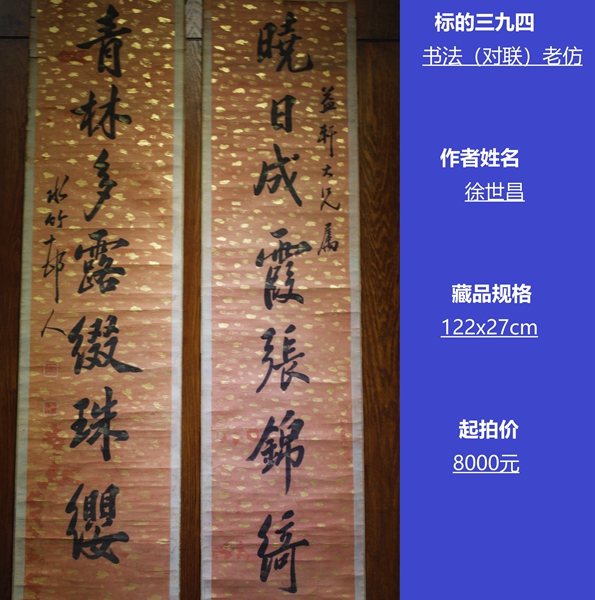 曉日成霞張錦綺
益軒大兄属
青林多露綴珠纓
水竹邨人
标的三九四
书法（对联）老仿
作者姓名
徐世昌
藏品规格
122x27cm
起拍价
8000元